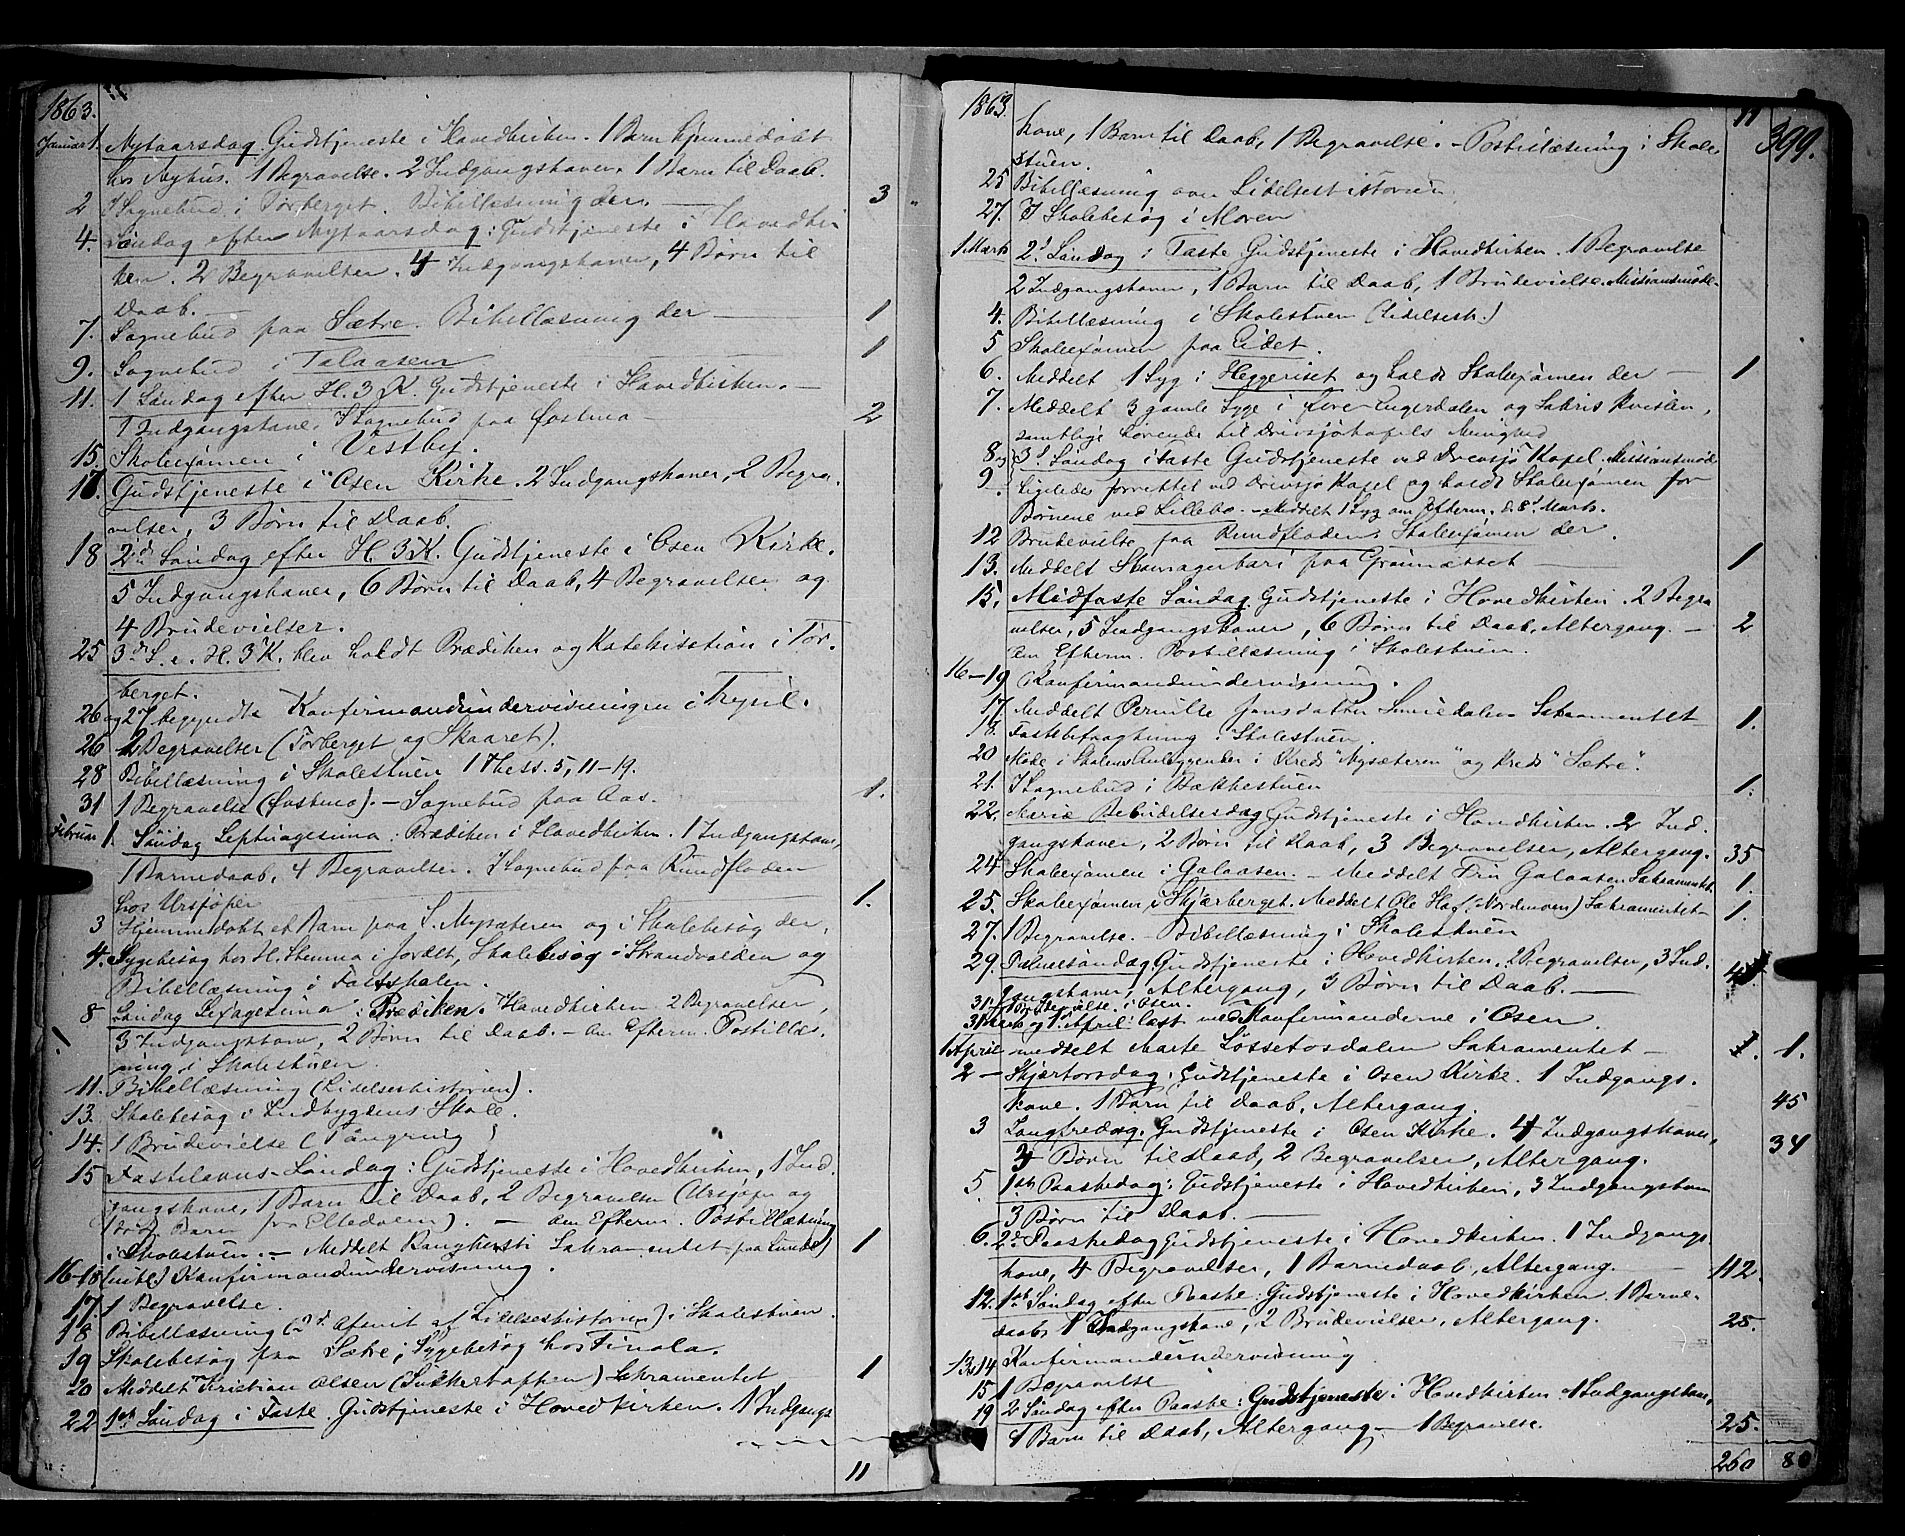 1863.
Januar 1. Nytaarsdag. Gudstjeneste i Hovedkirken. 1 Barn hjemmedøbt
hos Nyhus. 1 Begravelse. 2 Indgangskoner. 1 Barn til Daab.
2 I Sognebud i Tørberget. Bibellæsning der. — 3
4. Søndag efter Nytaarsdag: Gudstjeneste i Hovedkir
ken. 2 Begravelser. 4 Indgangskoner, 4 Børn til
Daab. —
7. Sognebud paa Sætre. Bibellæsning der — 1
9. Sognebud i Galaasen — 1
11. 1 Søndag efter H. 3 K. Gudstjeneste i Hovedkirken. —
1 Indgangskone. I Sognebud paa Østmo — 2
15. Skoleexamen i Vestby.
17. Gudstjeneste i Osen Kirke. 2 Indgangskoner, 2 Begra-
velser, 3 Børn til Daab.
18 2den Søndag efter H. 3 K. Gudstjeneste i Osen Kirke.
5 Indgangskoner, 6 Børn til Daab, 4 Begravelser og
4 Brudevielser.
25 3d S. e. H. 3 K. blev holdt Prædiken og Katekisation i Tør-
berget.
26 og 27 begyndte Konfirmandundervisningen i Trysil.
26 2 Begravelser (Tørberget og Skaaret).
28 Bibellæsning i Skolestuen 1 Thess. 5, 11-19.
31 1 Begravelse (Østmo). — Sognebud paa Aas. 1.
Februar 1. Søndag Septuagesima: Prædiken i Hovedkirken. 1 Indgangskone,
1 Barnedaab, 4 Begravelser. I Sognebud paa Rundfloden
hos Ursjøper 1.
3 Hjemmedøbt et Barn paa S. Mysæteren og i Skolebesøg der.
4. Sygebesøg hos H. Stemma i Jordet, Skolebesøg i Strandvolden og
Bibellæsning i
8 Søndag Sexagesima: Prædiken. Hovedkirken 2 Begravelser,
3 Indgangskone, 2 Børn til Daab. — Om Efterm. Postillæs-
ning i Skolestuen
11. Bibellæsning (Lidelseshistorien).
13. Skolebesøg i Indbygdens Skole.
14. 1 Brudevielse
15 Fastelavns-Søndag: Gudstjeneste i Hovedkirken, 1 Ind
gangskone, 1 Barn til Daab, 2 Begravelser (Ursjøper og
1 Barn fra). — om Efterm. Postillæsning
i Skolestuen. — Meddelt Sakramentet paa 1
16-18 Konfirmandundervisning.
17. 1 Begravelse.
18 Bibellæsning (2d Afsnit af Lidelseshistorien) i Skolestuen
19 Skolebesøg paa Sætre; Sygebesøg hos
20 Meddelt Kristian Olsen Sakramentet — 1
22 1ste Søndag i Faste. Gudstjeneste i Hovedkirken. 1 Indgangs
11
1863. 11 399.
kone, 1 Barn til Daab, 1 Begravelse. — Postillæsning i Skole-
stuen.
25 Bibellæsning over Lidelseshistorien
27. I Skolebesøg i Moren
1. Marts 2d Søndag i Faste Gudstjeneste i Hovedkirken. 1 Begravelse
2 Indgangskoner, 1 Barn til Daab, 1 Brudevielse. Missionsmøde.
4. Bibellæsning i Skolestuen (Lidelsesh.)
5 Skoleexamen paa Eidet.
6. Meddelt 1 Syg i Heggeriset og holdt Skoleexamen der — 1
7. Meddelt 3 gamle Syge i Engerdalen og
samtlige hørende til Drevsjøkapels Menighed
8 og 3d Søndag i Faste Gudstjeneste ved Drevsjø Kapel. Missionsmøde
9 ligeledes forrettet ved Drevsjø Kapel og holdt Skoleexamen for
Børnene ved Lillebo. — Meddelt 1 Syg om Efterm. d. 8d Marts.
12 Brudevielse paa Rundfloden. Skoleexamen der.
13. Meddelt paa — 1
15. Midfaste Søndag. Gudstjeneste i Hovedkirken. 2 Begra
velser, 5 Indgangskoner, 6 Børn til Daab, Altergang. — 2
Om Efterm. Postillæsning i Skolestuen.
16-19 Konfirmandundervisning.
17 Meddelt Pernille Jonsdatter Smedalen Sakramentet 1.
18. Fastebetragtning i Skolestuen.
20 Møde i Skolens Anliggender i Kreds "Mysæteren" og Kreds "Sætre".
21. I Sognebud i Bakkestuen 1.
22. Mariæ Bebudelsesdag Gudstjeneste i Hovedkirken. 2 Ind-
gangskoner, 2 Børn til Daab, 3 Begravelser, Altergang. 35
24 Skoleexamen i Galaasen. — Meddelt Galaasen Sakramentet. 1.
25. Skoleexamen i Skjærberget. Meddelt Ole Sakramentet — 1.
27. 1 Begravelse. — Bibellæsning i Skolestuen
29. Palmesøndag Gudstjeneste i Hovedkirken. 2 Begravelser, 3 Ind-
gangskoner, Altergang, 3 Børn til Daab. —
31. 1 Brudevielse i Osen.
31 Marts og 1st April læst med Konfirmanderne i Osen.
1 April meddelt Marte Løssetosdalen Sakramentet — 1.
2 — Skjærtorsdag: Gudstjeneste i Osen Kirke. 1 Indgangs-
kone. 1 Barn til Daab, Altergang. 45
3 Langfredag. Gudstjeneste i Osen Kirke. 4 Indgangskoner,
3 Børn til Daab, 2 Begravelser, Altergang. 34
5. 1ste Paaskedag: Gudstjeneste i Hovedkirken, 3 Indgangskoner
3 Børn til Daab. —
6. 2d Paaskedag Gudstjeneste i Hovedkirken. 1 Indgangs
kone, 4 Begravelser, 1 Barnedaab, Altergang. — 112.
12. 1ste Søndag efter Paaske: Gudstjeneste i Hovedkirken. 1 Barne-
daab, 1 Indgangskone, 2 Brudevielser, Altergang. 25.
13 & 14 Konfirmandundervisning
15 1 Begravelse
19 2 Søndag efter Paaske: Gudstjeneste i Hovedkirken 1 Indgangskone,
1 Barn til Daab, Altergang — 1 Begravelse. 25.
260 80